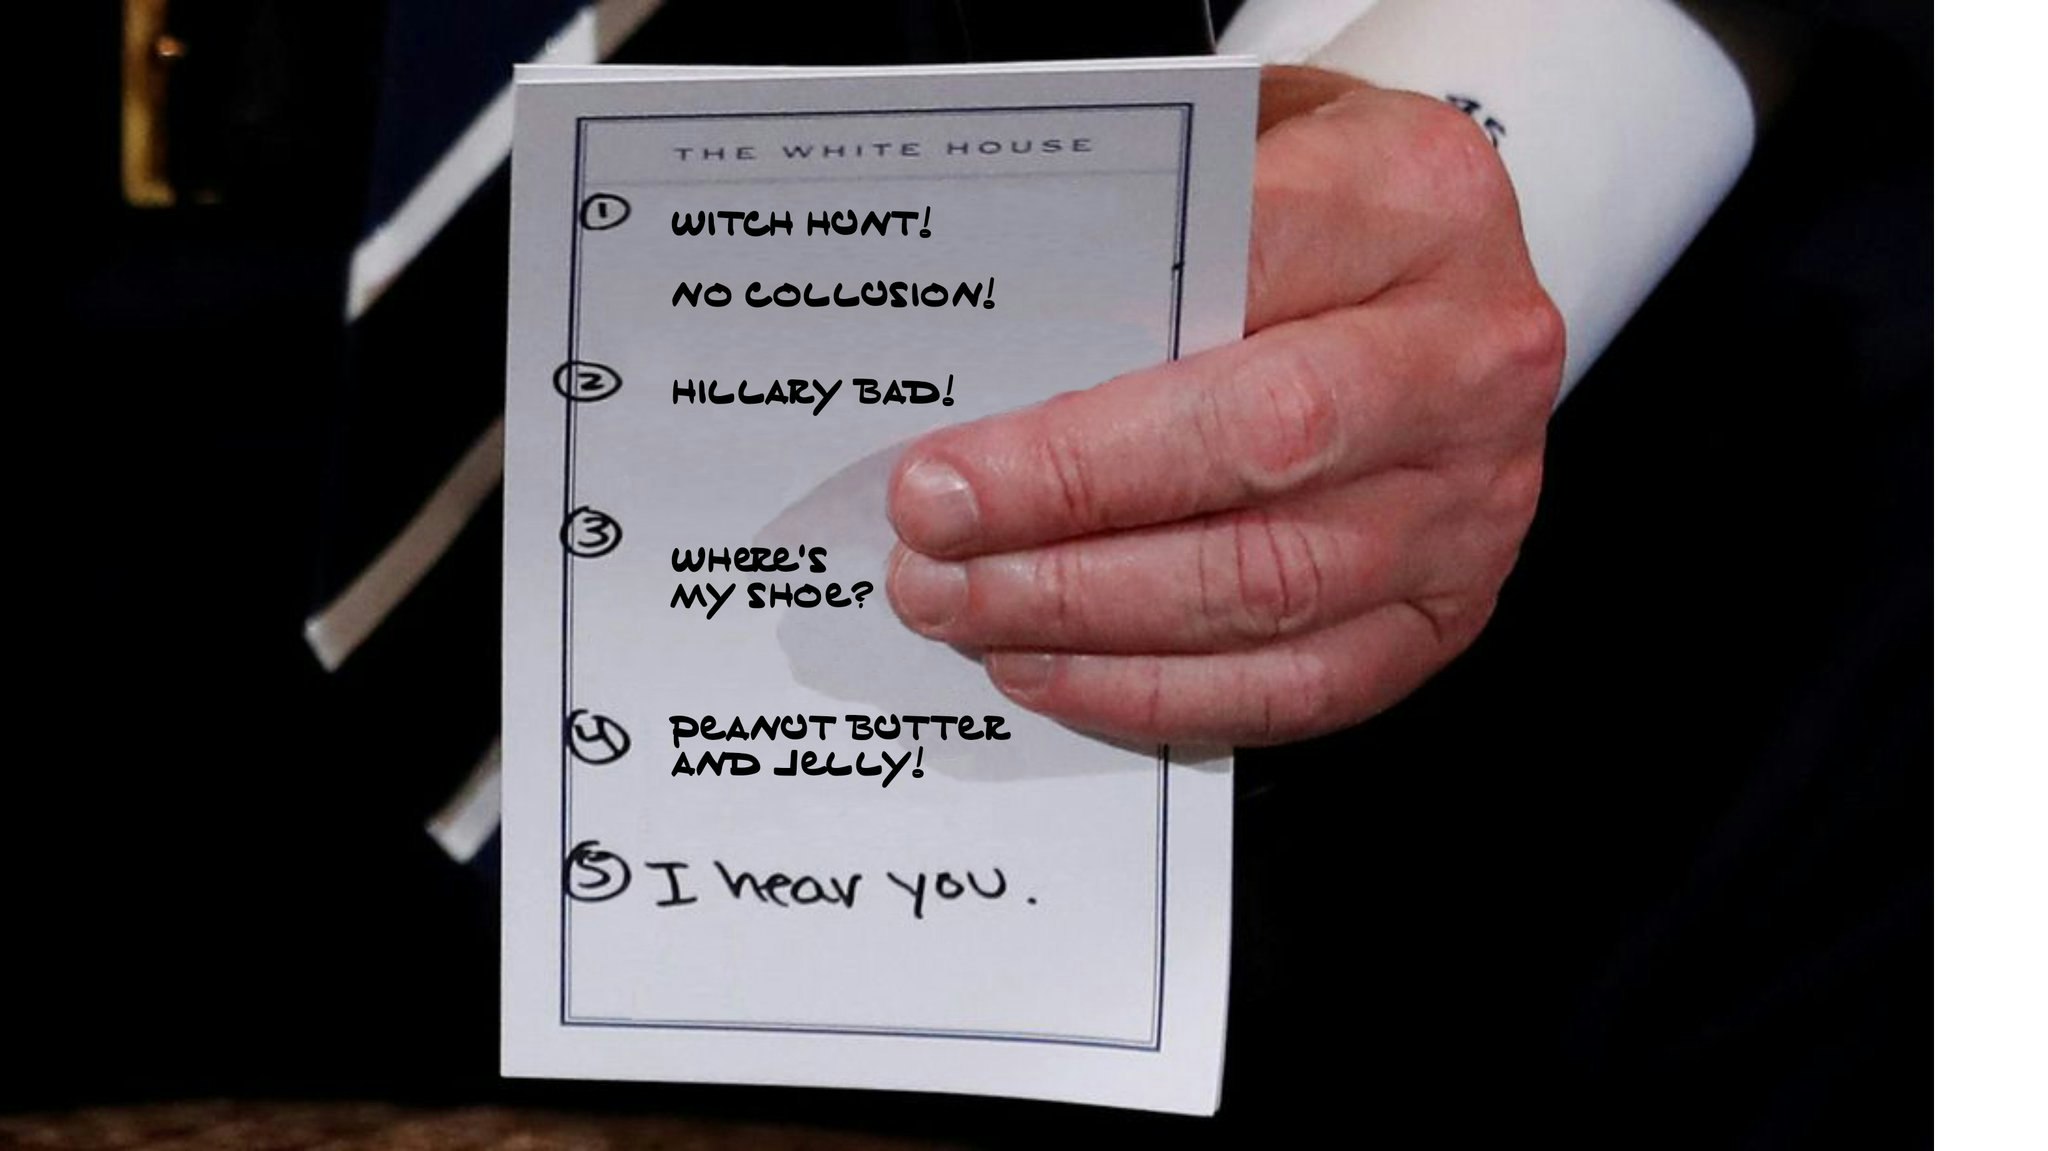 THE WHITE HOUSE
① WITCH HUNT!
NO COLLUSION!
② HILLARY BAD!
③ WHERE'S
MY SHOE?
④ PEANUT BUTTER
AND JELLY!
⑤ I hear you.